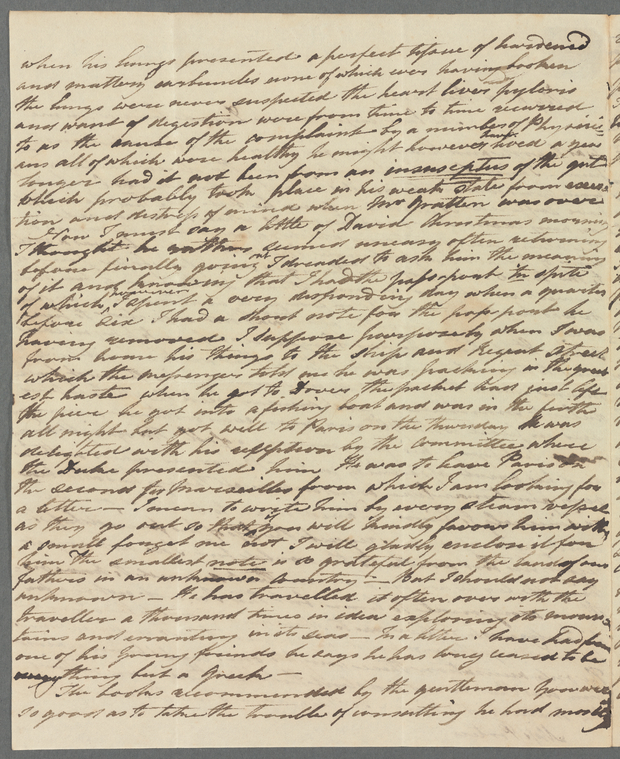 when his lungs presented a perfect tissue of hardened
and mattery carbuncles none of which ever having broken
the lungs were never suspected the heart liver pyloris
and want of digestion were from time to time referred
to as the cause of the complaint by a number of Physici
ans all of which were healthy he might however have lived a year
longer had it not been from an insusceptus of the gut
which probably took place in his weak state from exer
tion and distress of mind when Mr Grattan was over
Now I must say a little of David Christmas morning
I thought he rather seemed uneasy often returning
before finally going I dreaded to ask him the meaning
of it and knowing that I had the pass-port in spite
of which I spent a very desponding day when a quarter
before six I had a short note for the pass port he
having removed I suppose purposely when I was
from home his things to the ship and Regent Street
which the messenger told me he was packing in the great
est haste when he got to Dover the packet had just left
the pier he got into a fishing boat and was in the
all night but got well to Paris on the thursday He was
delighted with his reception by the committee where
the Duke presented him He was to have Paris on
the second for Marseilles from which I am looking for
a letter — I mean to write him by every steam vessel
as they go out so that if you will kindly favour him with
a small forget me not I will gladly enclose it for
him the smallest note is so grateful from the land of our
fathers in an unknown Country — But I should not say
unknown — He has travelled it often over with the
traveller a thousand times in idea exploring its moun
tains and wandering in its seas — In a letter I have had from
one of his young friends he says he has long ceased to be
every thing but a Greek —
The books recommended by the gentleman you were
so good as to take the trouble of consulting he had mostly